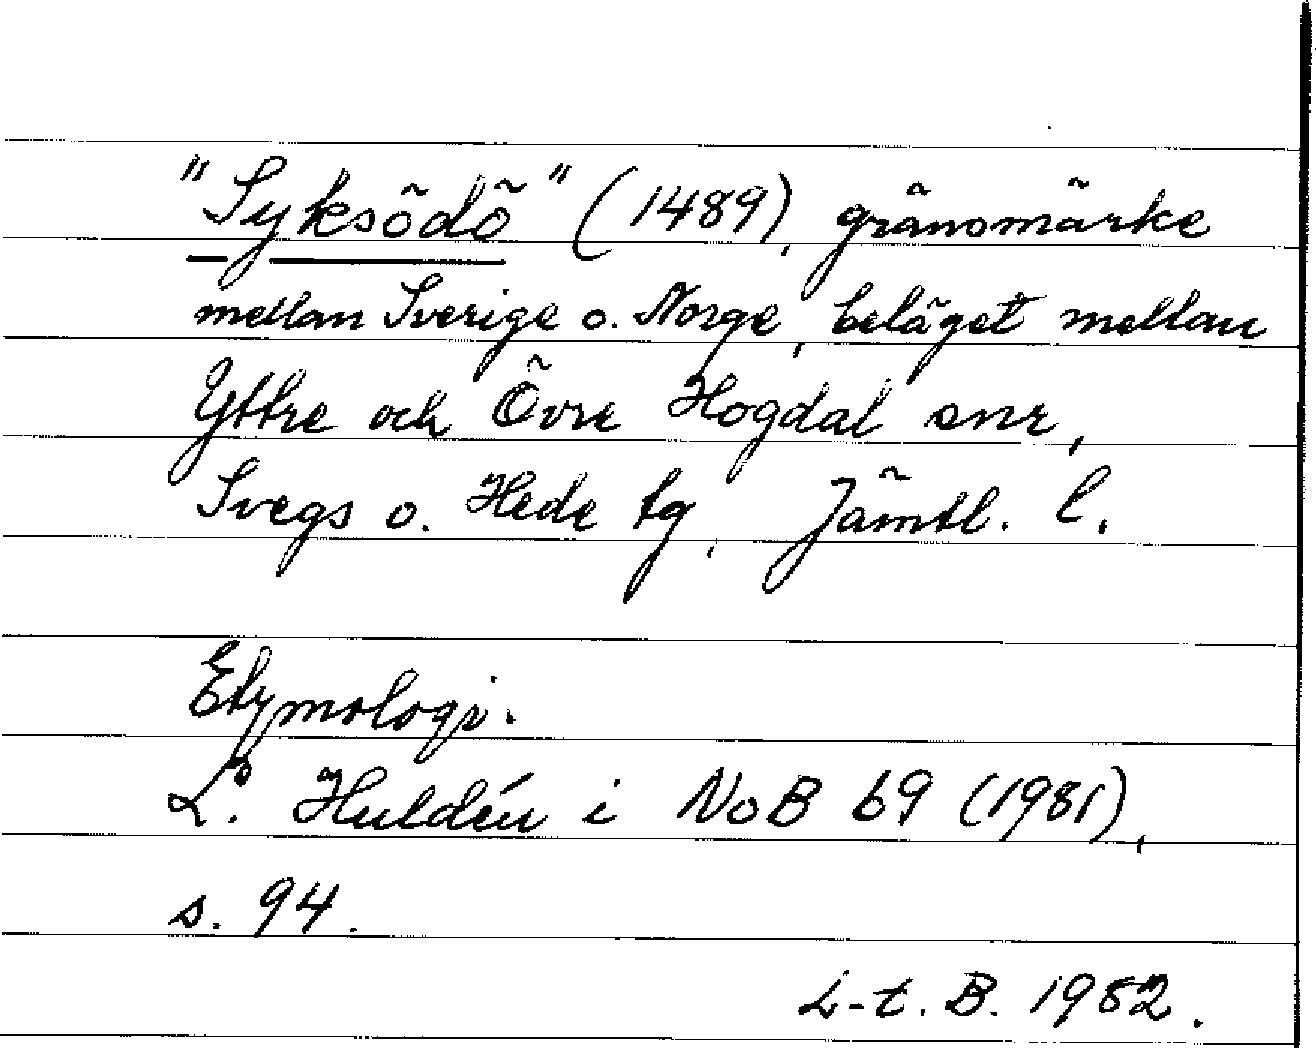 "Syksödö" (1489), gränsmärke
mellan Sverige o. Norge, beläget mellan
Yttre och Övre Hogdal snr,
Svegs o. Hede tg, Jämtl. l.
Etymologi.
L. Huldén i NoB 69 (1981),
s. 94.
L-t. B. 1982.